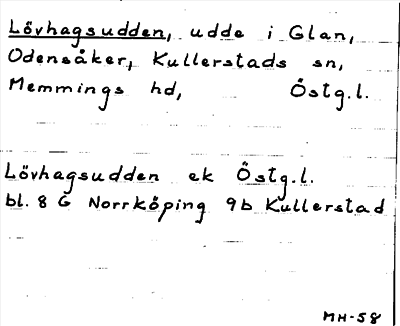 Lövhagsudden, udde i Glan,
Odensåker, Kullerstads sn,
Memmings hd, Östg.l.
Lövhagsudden ek Östg.l.
bl. 8 G Norrköping 9b Kullerstad
MH-58